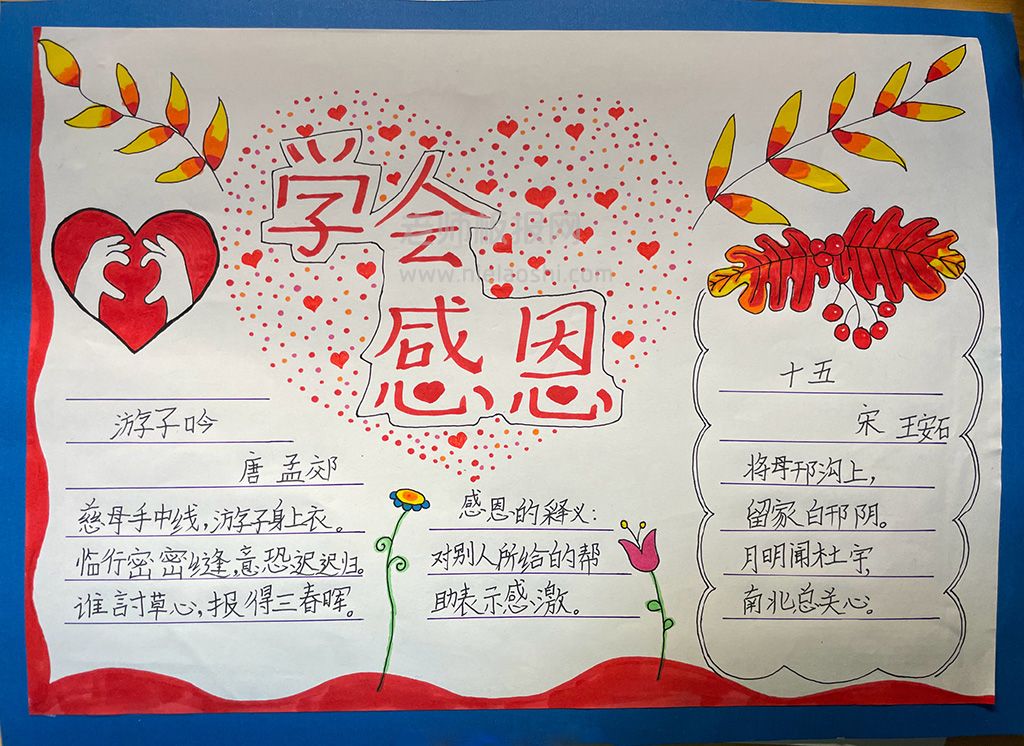 学会
感恩
老师板报网
www.nielaoshi.com
游子吟
唐 孟郊
慈母手中线,游子身上衣。
临行密密缝,意恐迟迟归。
谁討草心,报得三春晖。
感恩的释义:
对别人所给的帮
助表示感激。
十五
宋 王安石
将母邗沟上,
留家白邗阴。
月明闻杜宇,
南北总关心。